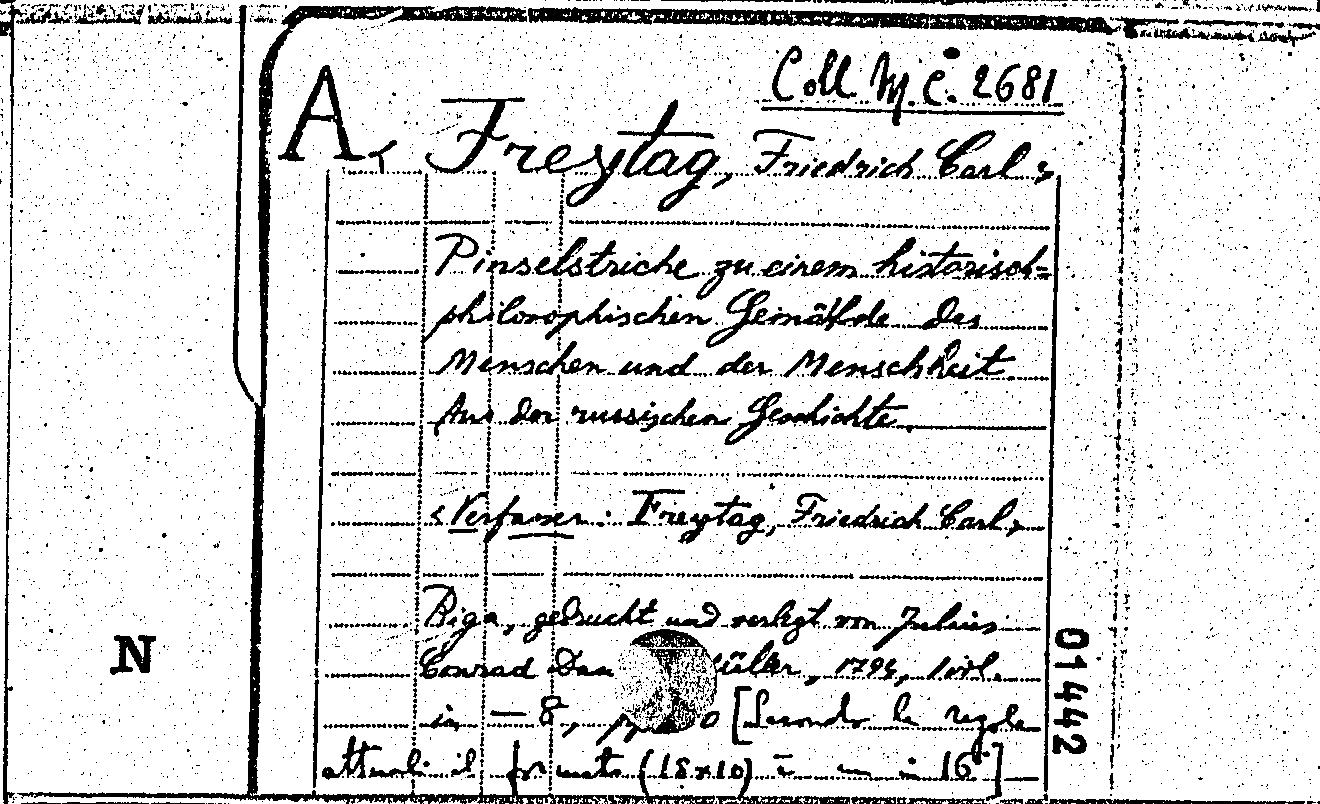 Coll M. C. 2681
A < Freytag, Friedrich Carl >
Pinselstriche zu einem historisch=
philosophischen Gemählde des
Menschen und der Menschheit
Aus der russischen Geschichte
<Verfasser: Freytag, Friedrich Carl>
Riga, gedruckt und verlegt von Julius
Conrad Dan üller, 1794, 1 vol.
in - 8, 0 [Secondo le regole
attuali il formato (18x10) è in 16°]
N
01442